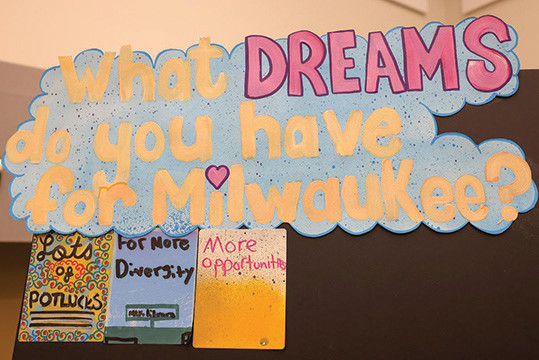 What DREAMS
do you have
for Milwaukee?
Lots
of
POTLUCKS
For More
Divergity
More
opportunities